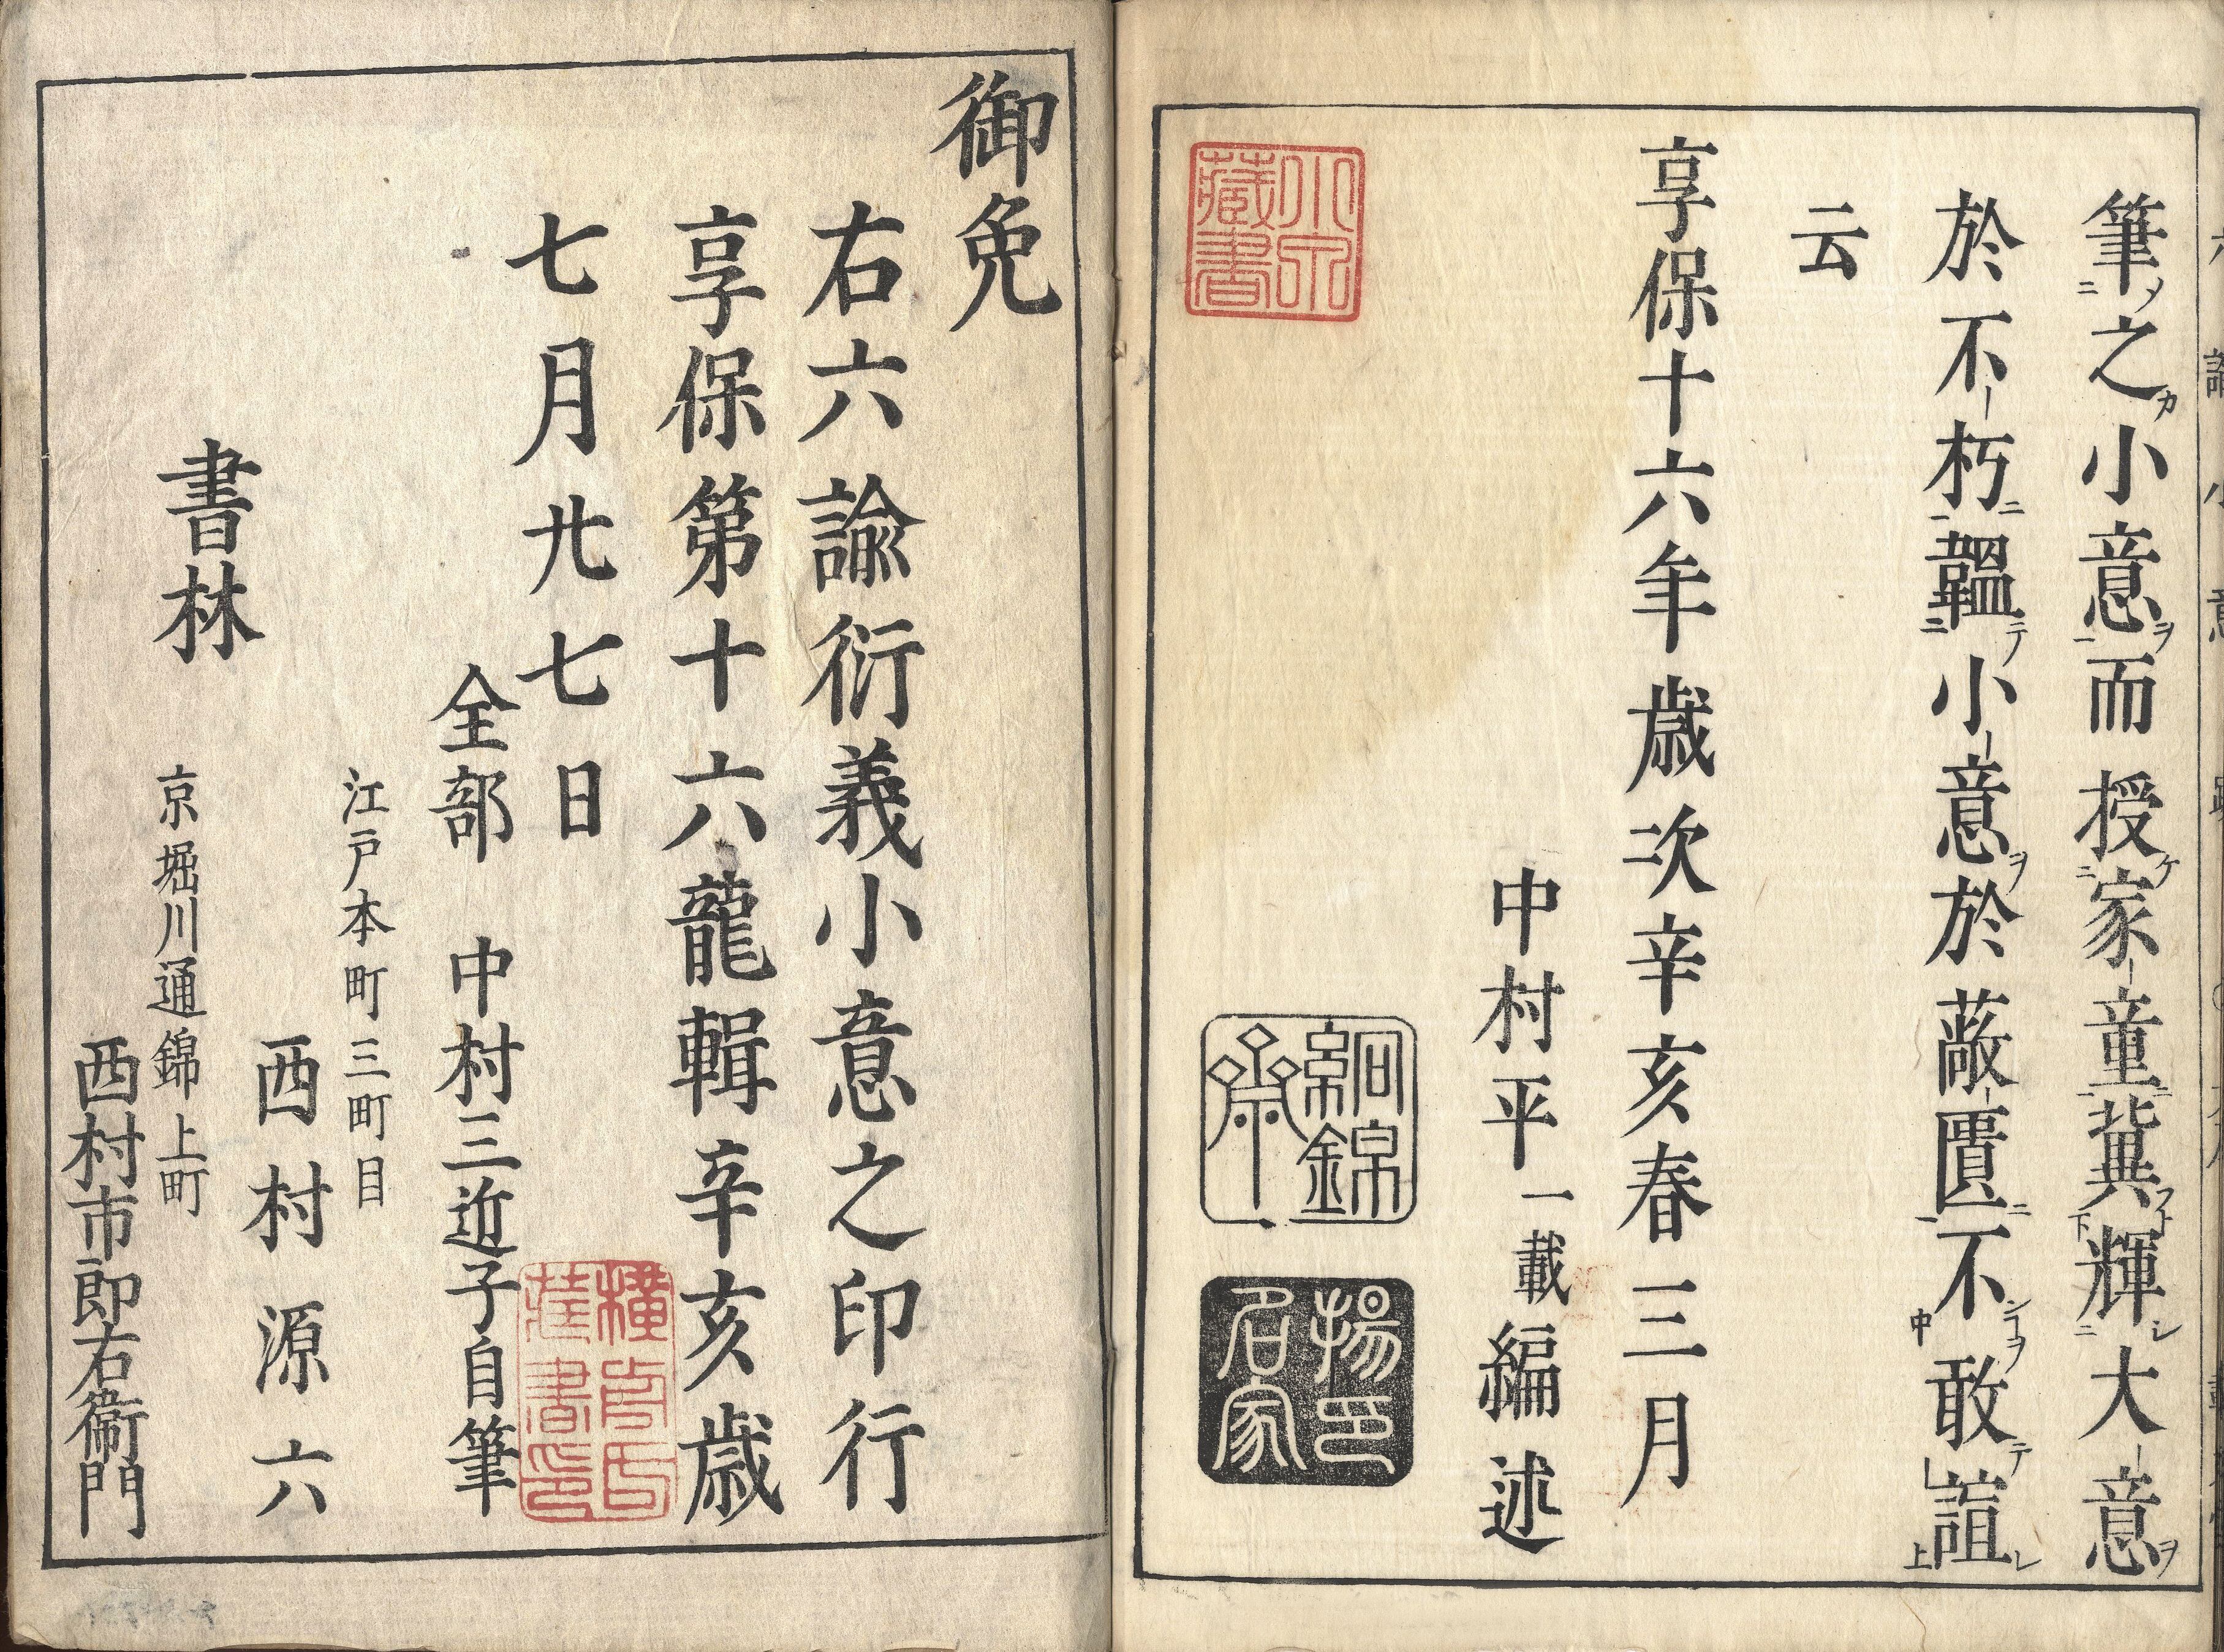 筆之小意而授家童冀輝大意
於不朽韞小意於蔵匱不敢諠
云
享保十六年歳次辛亥春三月
中村平一載編述
絅錦斎
揚名家印
小泉蔵書
御免
右六諭衍義小意之印行
享保第十六龍輯辛亥歳
七月廿七日
全部 中村三近子自筆
江戸本町三町目
西村源六
書林
京堀川通錦上町
西村市郎右衛門